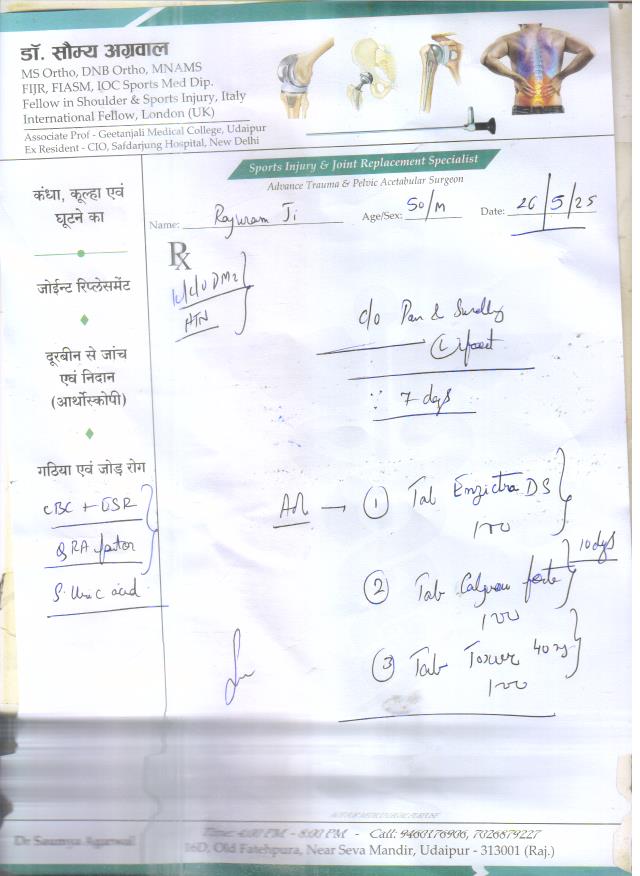 डॉ. सौम्य अग्रवाल
MS Ortho, DNB Ortho, MNAMS
FIJR, FIASM, IOC Sports Med Dip.
Fellow in Shoulder & Sports Injury, Italy
International Fellow, London (UK)
Associate Prof - Geetanjali Medical College, Udaipur
Ex Resident - CIO, Safdarjung Hospital, New Delhi
Sports Injury & Joint Replacement Specialist
Advance Trauma & Pelvic Acetabular Surgeon
Name: Rajuram Ji Age/Sex: 50/M Date: 26/5/25
कंधा, कूल्हा एवं
घूटने का
जोईन्ट रिप्लेसमेंट
दूरबीन से जांच
एवं निदान
(आर्थोस्कोपी)
गठिया एवं जोड़ रोग
CBC + ESR
RA factor
S. Uric acid
Rx
K/C/O DM2
HTN
c/o Pain & Swelling
(L)
7 days
Adv → ① Tab DS
100
② Tab forte
100
10 days
③ Tab 40 mg
100
Time: 4:00 PM - 8:00 PM - Call: 9460176906, 7026879227
Dr Saumya Agarwal
16D, Old Fatehpura, Near Seva Mandir, Udaipur - 313001 (Raj.)